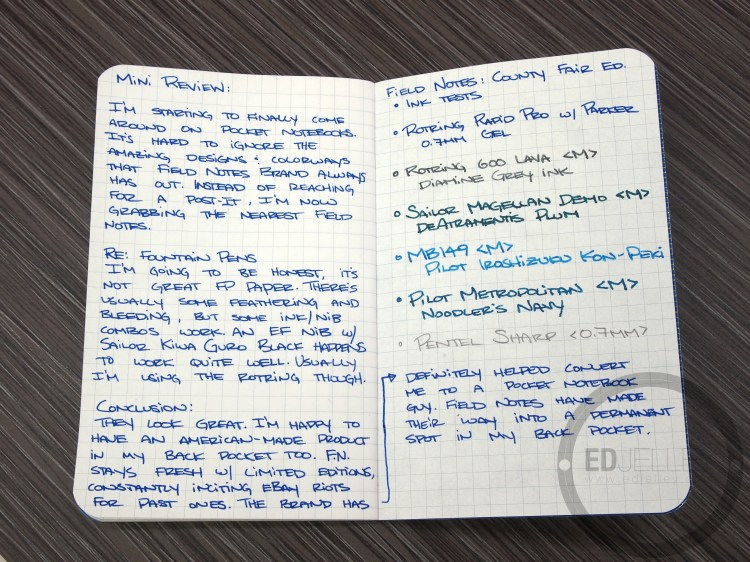 Mini Review:
I'm starting to finally come
around on pocket notebooks.
It's hard to ignore the
amazing designs & colorways
that Field Notes Brand always
has out. Instead of reaching
for a Post-it, I'm now
grabbing the nearest Field
Notes.
Re: Fountain Pens
I'm going to be honest, it's
not great FP paper. There's
usually some feathering and
bleeding, but some ink/nib
combos work. An EF nib w/
Sailor Kiwa Guro Black happens
to work quite well. Usually
I'm using the Rotring though.
Conclusion:
They look great. I'm happy to
have an American-made product
in my back pocket too. F.N.
stays fresh w/ limited editions,
constantly inciting eBay riots
for past ones. The brand has
Field Notes: County Fair Ed.
• Ink Tests
• Rotring Radio Pro w/ Parker
0.7mm Gel
• Rotring 600 Lava <M>
Diamine Grey Ink
• Sailor Magellan Demo <M>
DeAtramentis Plum
• MB149 <M>
Pilot Iroshizuku Kon-Peki
• Pilot Metropolitan <M>
Noodler's Navy
• Pentel Sharp <0.7mm>
definitely helped convert
me to a pocket notebook
guy. Field Notes have made
their way into a permanent
spot in my back pocket.
EDJELLEY